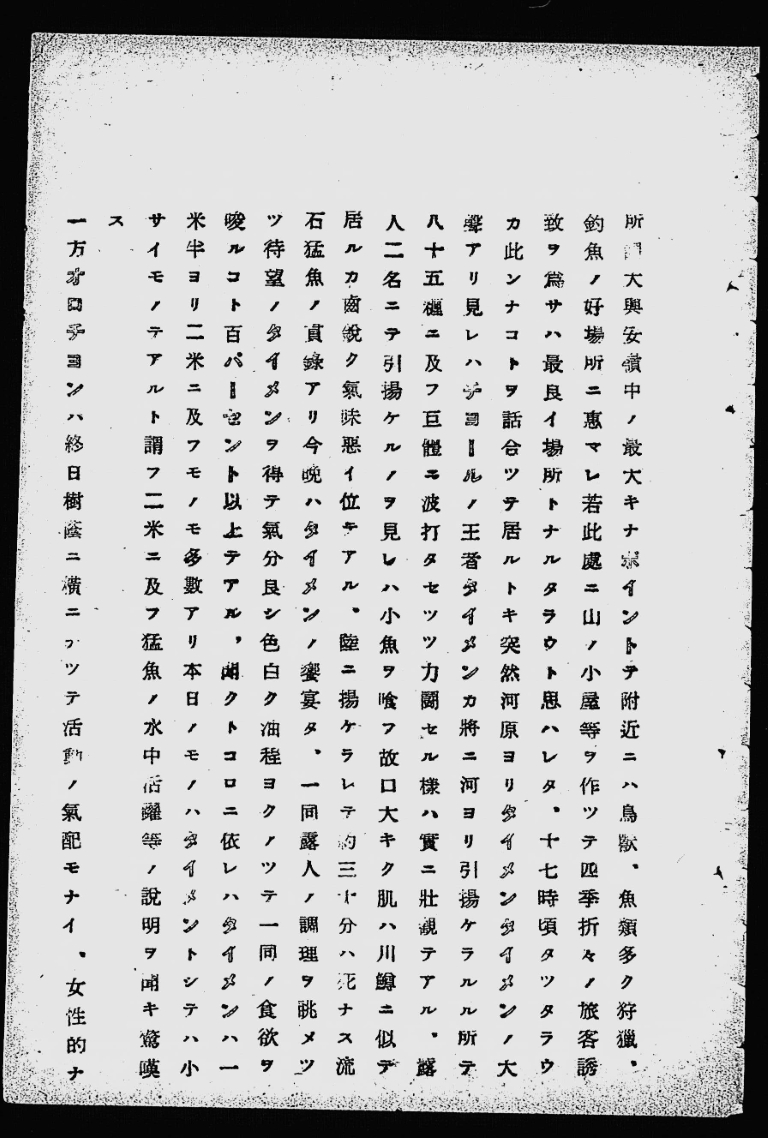 所謂大興安嶺中ノ最大キナポイントテ附近ニハ鳥獸、魚類多ク狩獵、
釣魚ノ好場所ニ惠マレ若此處ニ山ノ小屋等ヲ作ツテ四季折々ノ旅客誘
致ヲ爲サハ最良イ場所トナルタラウト思ハレタ、十七時頃タツタラウ
カ此ンナコトヲ話合ツテ居ルトキ突然河原ヨリタイメンタイメンノ大
聲アリ見レハチヨールノ王者タイメンカ將ニ河ヨリ引揚ケラルル所テ
八十五糎ニ及フ巨體ニ波打タセツツ力鬪セル樣ハ實ニ壯觀テアル、露
人二名ニテ引揚ケルノヲ見レハ小魚ヲ喰フ故口大キク肌ハ川鱒ニ似テ
居ルカ齒銳ク氣味惡イ位テアル、陸ニ揚ケラレテ約三十分ハ死ナス流
石猛魚ノ貫錄アリ今晩ハタイメンノ饗宴タ、一同露人ノ調理ヲ眺メツ
ツ待望ノタイメンヲ得テ氣分良シ色白ク油程ヨクノツテ一同ノ食欲ヲ
唆ルコト百パーセント以上テアル、聞クトコロニ依レハタイメンハ一
米半ヨリ二米ニ及フモノモ多數アリ本日ノモノハタイメントシテハ小
サイモノテアルト謂フ二米ニ及フ猛魚ノ水中活躍等ノ說明ヲ聞キ驚嘆
ス
一方オロチヨンハ終日樹蔭ニ橫ニナツテ活動ノ氣配モナイ、女性的ナ